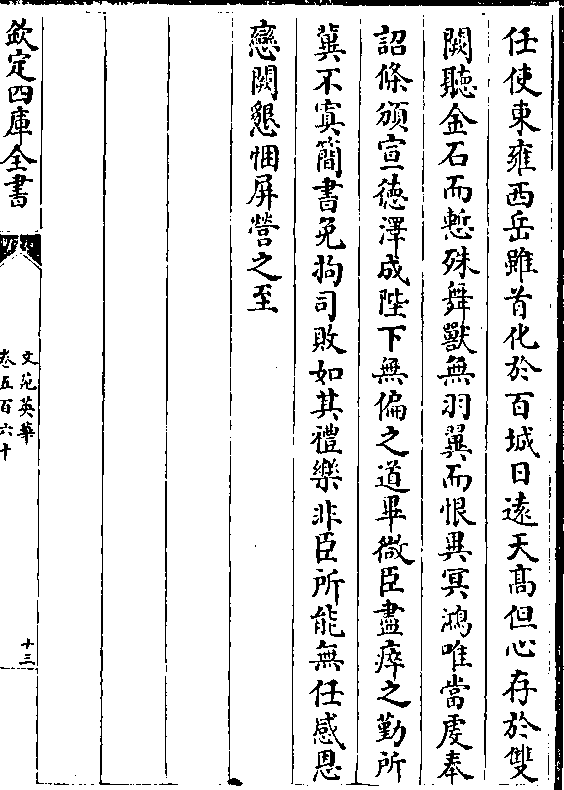 任使東雍西岳雖首化於百城日逺天髙但心存於雙
闕聽金石而慙殊舞獸無羽翼而恨異冥鴻唯當䖍奉
詔條頒宣徳澤成陛下無偏之道畢微臣盡瘁之勤所
冀不寘簡書免拘司敗如其禮樂非臣所能無任感恩
戀闕懇悃屏營之至
欽定四庫全書
文苑英華
卷五百六十
十三